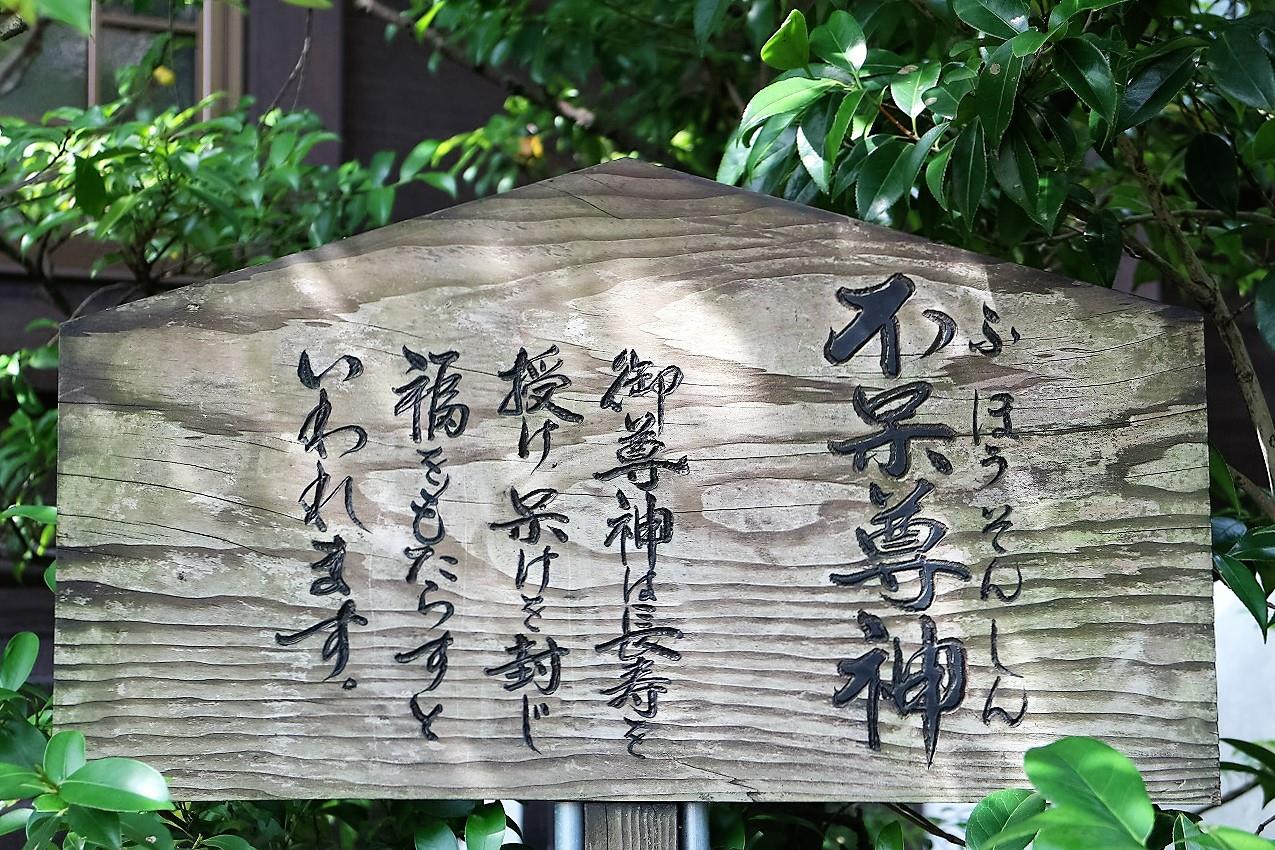 ふほうそんしん
不呆尊神
御尊神は長寿を
授け呆けを封じ
福をもたらすと
いわれます。